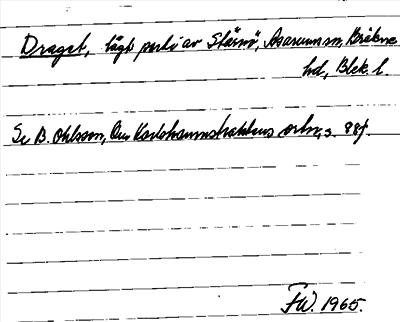 Draget, lågt parti av Stärnö, Asarums sn, Bräkne
hd, Blek. l.
Se B. Ohlsson, Om Karlshamnstraktens ortn, s. 88f.
FW. 1965.